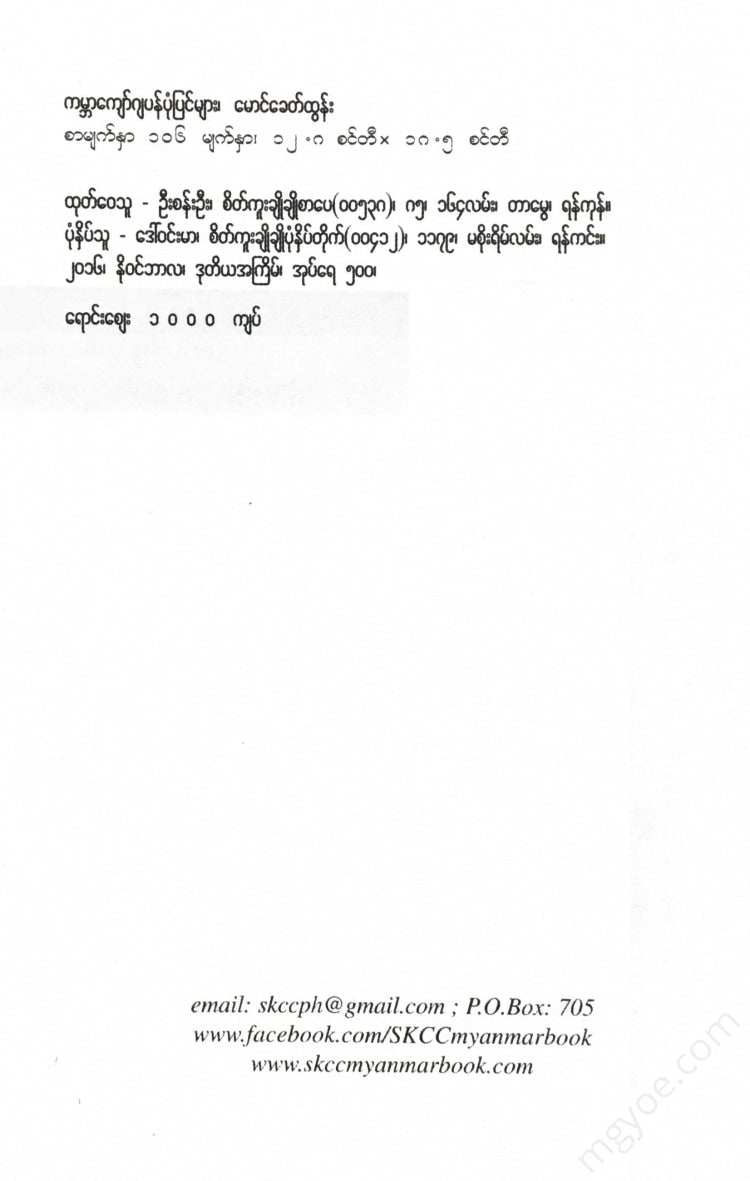 ကမ္ဘာကျော်ဂျပန်ပုံပြင်များ၊ မောင်ခေတ်ထွန်း
စာမျက်နှာ ၁၀၆ မျက်နှာ၊ ၁၂ .၈ စင်တီ× ၁၈.၅ စင်တီ
ထုတ်ဝေသူ - ဦးစန်းဦး၊ စိတ်ကူးချိုချိုစာပေ(၀၀၅၃၈)၊ ၈၅၊ ၁၆၄လမ်း၊ တာမွေ၊ ရန်ကုန်။
ပုံနှိပ်သူ - ဒေါ်ဝင်းမာ၊ စိတ်ကူးချိုချိုပုံနှိပ်တိုက်(၀၀၄၁၂)၊ ၁၁၇၉၊ မစိုးရိမ်လမ်း၊ ရန်ကင်း။
၂၀၁၆၊ နိုဝင်ဘာလ၊ ဒုတိယအကြိမ်၊ အုပ်ရေ ၅၀၀၊
ရောင်းဈေး ၁ ၀ ၀ ၀ ကျပ်
email: skccph@gmail.com ; P.O.Box: 705
www.facebook.com/SKCCmyanmarbook
www.skccmyanmarbook.com
mgyoe.com